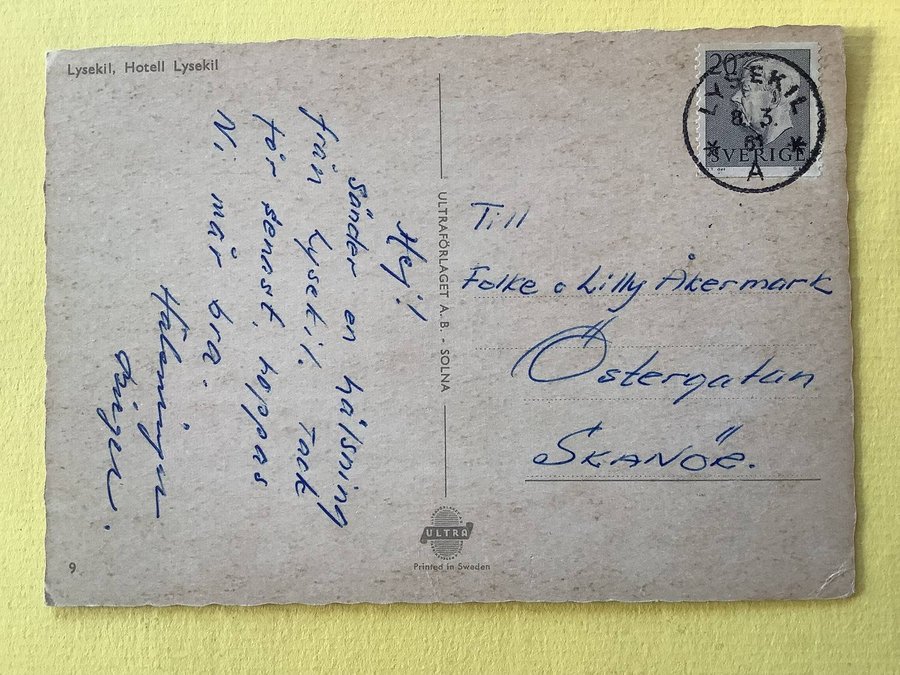 Lysekil, Hotell Lysekil
Hej!
Sänder en hälsning
från Lysekil. Tack
för senast, hoppas
Ni mår bra.
Hälsningar
Inger.
ULTRAFÖRLAGET A. B. - SOLNA
20
SVERIGE
LYSEKIL
8. 3.
61
A
Till
Folke o Lilly Åkermark
Östergatan
SKANÖR.
ULTRA
Printed in Sweden
9